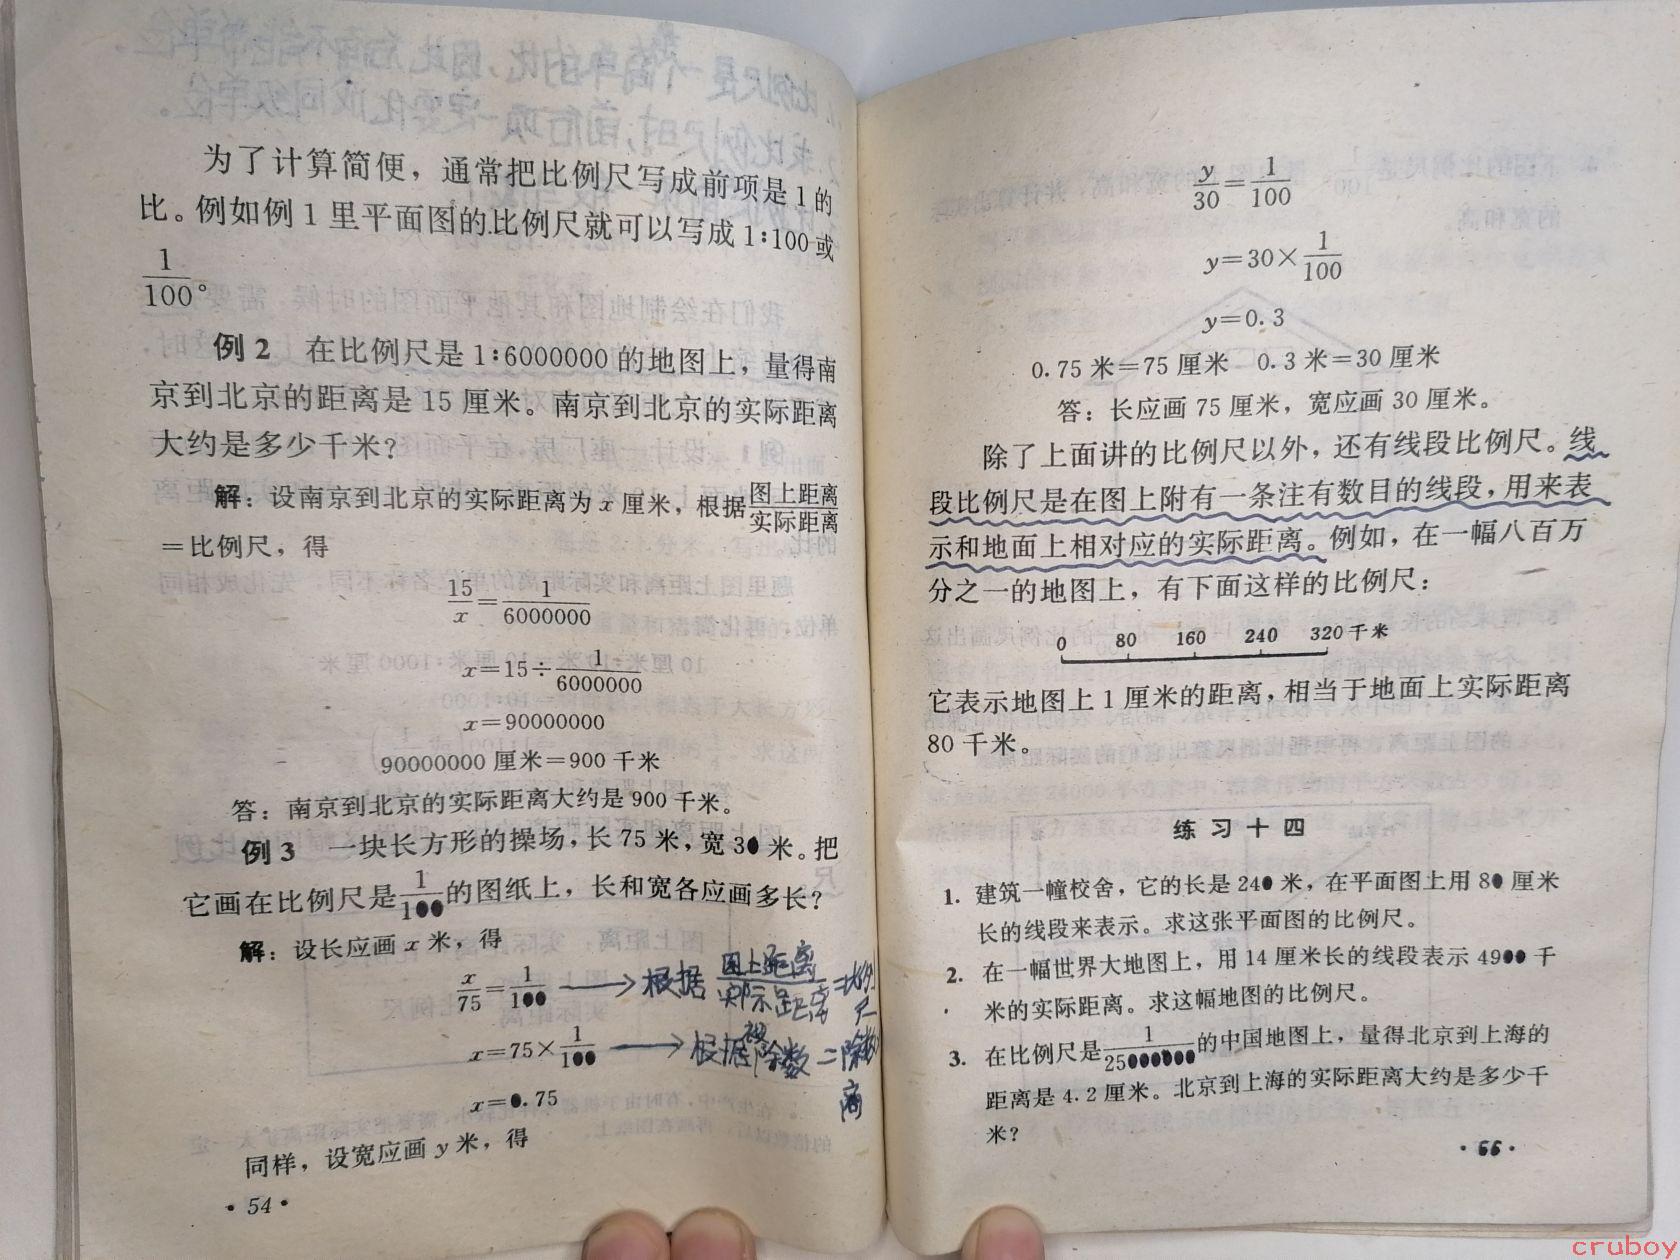 为了计算简便，通常把比例尺写成前项是1的
比。例如例1里平面图的比例尺就可以写成1:100或
1/100。
例2 在比例尺是1:6000000的地图上，量得南
京到北京的距离是15厘米。南京到北京的实际距离
大约是多少千米？
解：设南京到北京的实际距离为x厘米，根据图上距离/实际距离
=比例尺，得
15/x=1/6000000
x=15÷1/6000000
x=90000000
90000000厘米=900千米
答：南京到北京的实际距离大约是900千米。
例3 一块长方形的操场，长75米，宽30米。把
它画在比例尺是1/100的图纸上，长和宽各应画多长？
解：设长应画x米，得
x/75=1/100 → 根据 图上距离/实际距离=比例尺
x=75×1/100 → 根据被除数=除数 商
x=0.75
同样，设宽应画y米，得
·54·
y/30=1/100
y=30×1/100
y=0.3
0.75米=75厘米 0.3米=30厘米
答：长应画75厘米，宽应画30厘米。
除了上面讲的比例尺以外，还有线段比例尺。线
段比例尺是在图上附有一条注有数目的线段，用来表
示和地面上相对应的实际距离。例如，在一幅八百万
分之一的地图上，有下面这样的比例尺：
0 80 160 240 320千米
它表示地图上1厘米的距离，相当于地面上实际距离
80千米。
练习十四
1. 建筑一幢校舍，它的长是240米，在平面图上用80厘米
长的线段来表示。求这张平面图的比例尺。
2. 在一幅世界大地图上，用14厘米长的线段表示4900千
米的实际距离。求这幅地图的比例尺。
3. 在比例尺是1/25000000的中国地图上，量得北京到上海的
距离是4.2厘米。北京到上海的实际距离大约是多少千
米？
·66·
cruboy